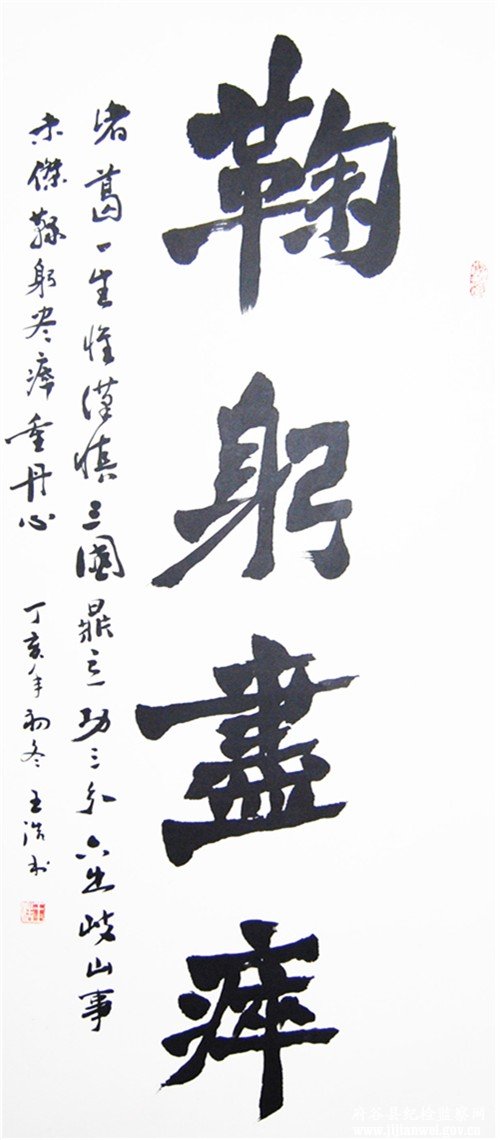 鞠躬盡瘁
诸葛一生惟谨慎三國鼎立功三分六出岐山事
未傑鞠躬尽瘁垂丹心
丁亥年初冬王浩书
府谷县纪检监察网
www.fgjianwei.gov.cn